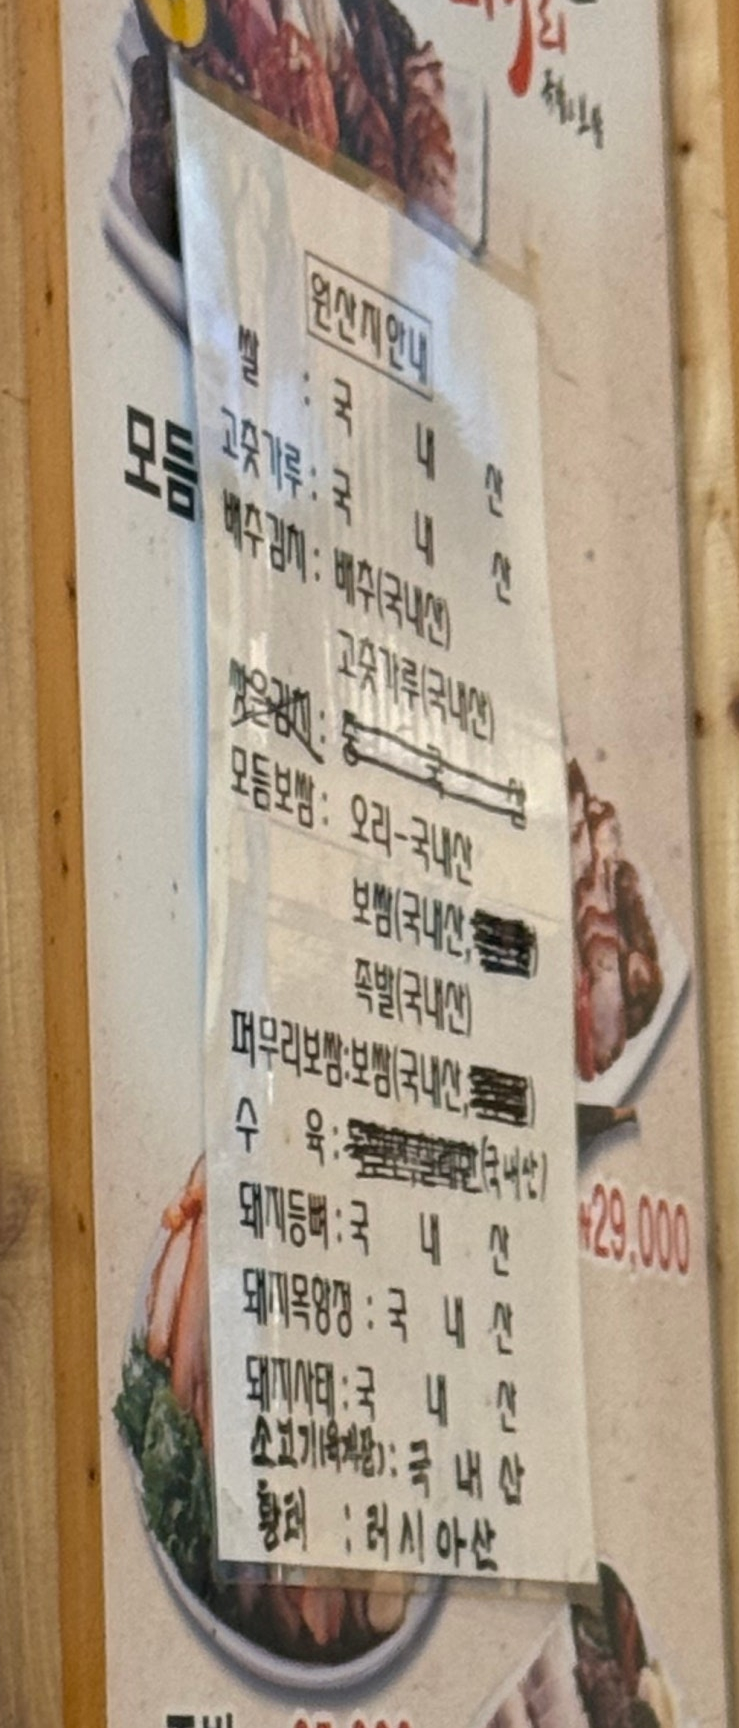 원산지안내
쌀 : 국 내 산
고춧가루 : 국 내 산
배추김치 : 배추(국내산)
고춧가루(국내산)
모듬
모듬보쌈 : 오리-국내산
보쌈(국내산,
족발(국내산)
퍼무리보쌈:보쌈(국내산,
수 육 : (국내산)
₩29,000
돼지등뼈 : 국 내 산
돼지목항정 : 국 내 산
돼지사태 : 국 내 산
소고기(육개장) : 국 내 산
황태 : 러시아산